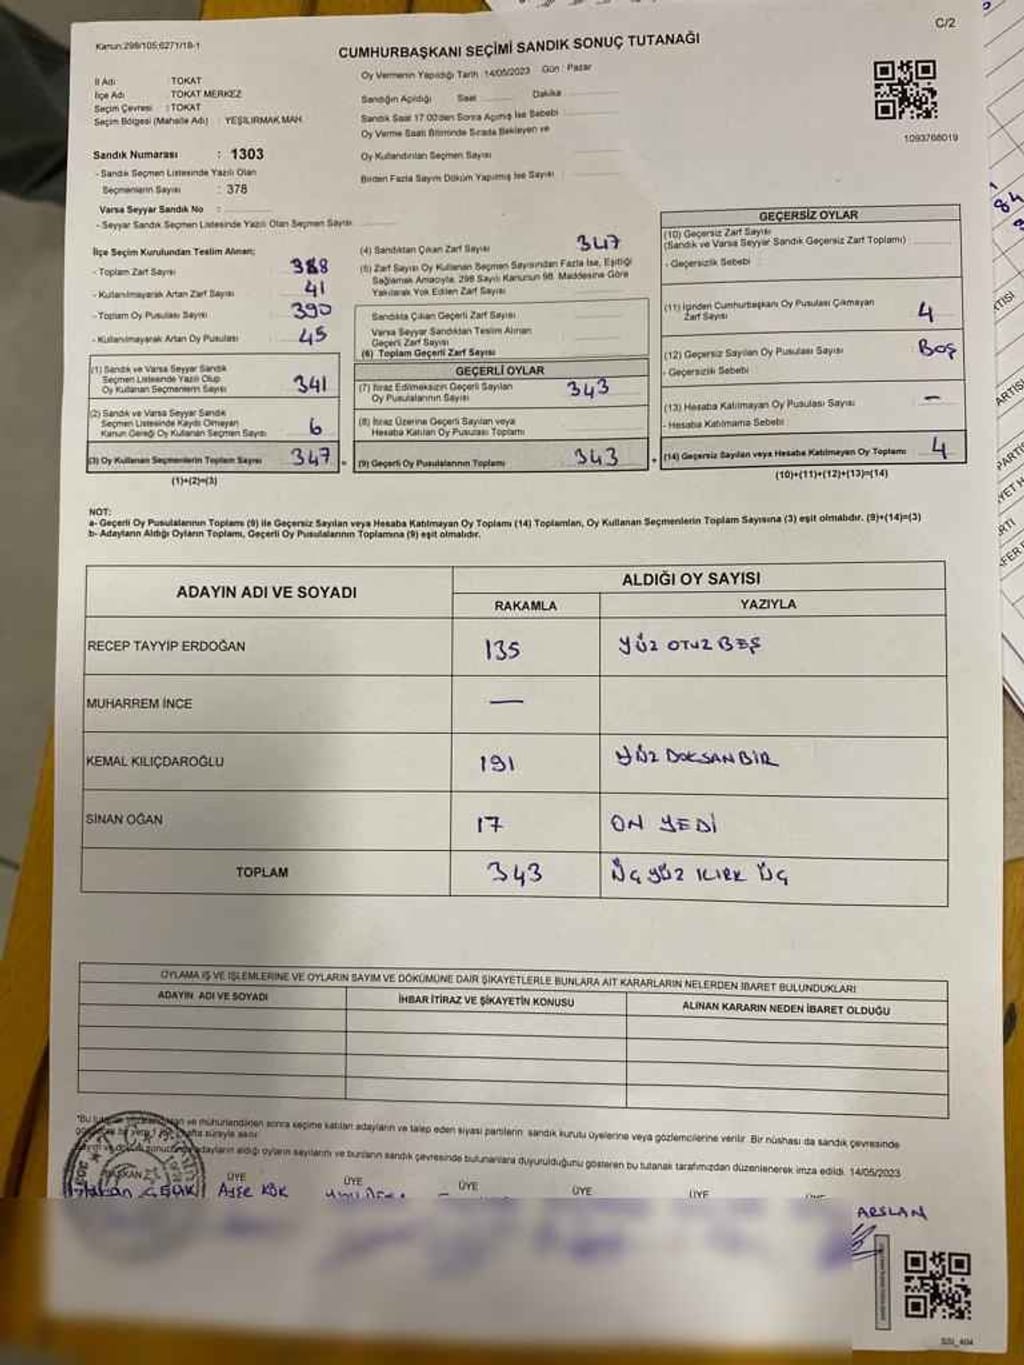 C/2
Kanun:298/105;6271/18-1
CUMHURBAŞKANI SEÇİMİ SANDIK SONUÇ TUTANAĞI
İl Adı TOKAT
İlçe Adı TOKAT MERKEZ
Seçim Çevresi : TOKAT
Seçim Bölgesi (Mahalle Adı) : YEŞILIRMAK MAH.
Oy Vermenin Yapıldığı Tarih 14/05/2023 Gün : Pazar
Sandığın Açıldığı Saat Dakika
Sandık Saat 17:00'den Sonra Açımış İse Sebebi
Oy Verme Saati Bitiminde Sırada Bekleyen ve
Oy Kullandırılan Seçmen Sayısı
Birden Fazla Sayım Döküm Yapılmış İse Sayısı
1093768019
Sandık Numarası : 1303
- Sandık Seçmen Listesinde Yazılı Olan
Seçmenlerin Sayısı : 378
Varsa Seyyar Sandık No :
- Seyyar Sandık Seçmen Listesinde Yazılı Olan Seçmen Sayısı
İlçe Seçim Kurulundan Teslim Alınan;
- Toplam Zarf Sayısı 388
- Kullanılmayarak Artan Zarf Sayısı 41
- Toplam Oy Pusulası Sayısı 390
- Kullanılmayarak Artan Oy Pusulası 45
(1) Sandık ve Varsa Seyyar Sandık
Seçmen Listesinde Yazılı Olup
Oy Kullanan Seçmenlerin Sayısı 341
(2) Sandık ve Varsa Seyyar Sandık
Seçmen Listesinde Kaydı Olmayan
Kanun Gereği Oy Kullanan Seçmen Sayısı 6
(3) Oy Kullanan Seçmenlerin Toplam Sayısı 347
(1)+(2)=(3)
(4) Sandıktan Çıkan Zarf Sayısı 347
(5) Zarf Sayısı Oy Kullanan Seçmen Sayısından Fazla İse, Eşitliği
Sağlamak Amacıyla, 298 Sayılı Kanunun 98. Maddesine Göre
Yakılarak Yok Edilen Zarf Sayısı
Sandıkta Çıkan Geçerli Zarf Sayısı
Varsa Seyyar Sandıktan Teslim Alınan
Geçerli Zarf Sayısı
(6) Toplam Geçerli Zarf Sayısı
GEÇERLİ OYLAR
(7) İtiraz Edilmeksizin Geçerli Sayılan
Oy Pusulalarının Sayısı 343
(8) İtiraz Üzerine Geçerli Sayılan veya
Hesaba Katılan Oy Pusulası Toplamı
(9) Geçerli Oy Pusulalarının Toplamı 343
GEÇERSİZ OYLAR
(10) Geçersiz Zarf Sayısı
(Sandık ve Varsa Seyyar Sandık Geçersiz Zarf Toplamı)
- Geçersizlik Sebebi
(11) İçinden Cumhurbaşkanı Oy Pusulası Çıkmayan
Zarf Sayısı 4
(12) Geçersiz Sayılan Oy Pusulası Sayısı BOŞ
- Geçersizlik Sebebi
(13) Hesaba Katılmayan Oy Pusulası Sayısı –
- Hesaba Katılmama Sebebi
(14) Geçersiz Sayılan veya Hesaba Katılmayan Oy Toplamı 4
(10)+(11)+(12)+(13)=(14)
NOT:
a- Geçerli Oy Pusulalarının Toplamı (9) ile Geçersiz Sayılan veya Hesaba Katılmayan Oy Toplamı (14) Toplamları, Oy Kullanan Seçmenlerin Toplam Sayısına (3) eşit olmalıdır. (9)+(14)=(3)
b- Adayların Aldığı Oyların Toplamı, Geçerli Oy Pusulalarının Toplamına (9) eşit olmalıdır.
ADAYIN ADI VE SOYADI ALDIĞI OY SAYISI
RAKAMLA YAZIYLA
RECEP TAYYİP ERDOĞAN 135 YÜZ OTUZ BEŞ
MUHARREM İNCE —
KEMAL KILIÇDAROĞLU 191 YÜZ DOKSAN BİR
SİNAN OĞAN 17 ON YEDİ
TOPLAM 343 ÜÇ YÜZ KIRK ÜÇ
OYLAMA İŞ VE İŞLEMLERİNE VE OYLARIN SAYIM VE DÖKÜMÜNE DAİR ŞİKAYETLERLE BUNLARA AİT KARARLARIN NELERDEN İBARET BULUNDUKLARI
ADAYIN ADI VE SOYADI İHBAR İTİRAZ VE ŞİKAYETİN KONUSU ALINAN KARARIN NEDEN İBARET OLDUĞU
ve mühürlendikten sonra seçime katılan adayların ve talep eden siyasi partilerin sandık kurulu üyelerine veya gözlemcilerine verilir. Bir nüshası da sandık çevresinde
süreyle asılır.
adayların aldığı oyların sayılarını ve bunların sandık çevresinde bulunanlara duyurulduğunu gösteren bu tutanak tarafımızdan düzenlenerek imza edildi. 14/05/2023
BAŞKAN ÜYE ÜYE ÜYE ÜYE ÜYE
AYŞE KÖK
ARSLAN
84